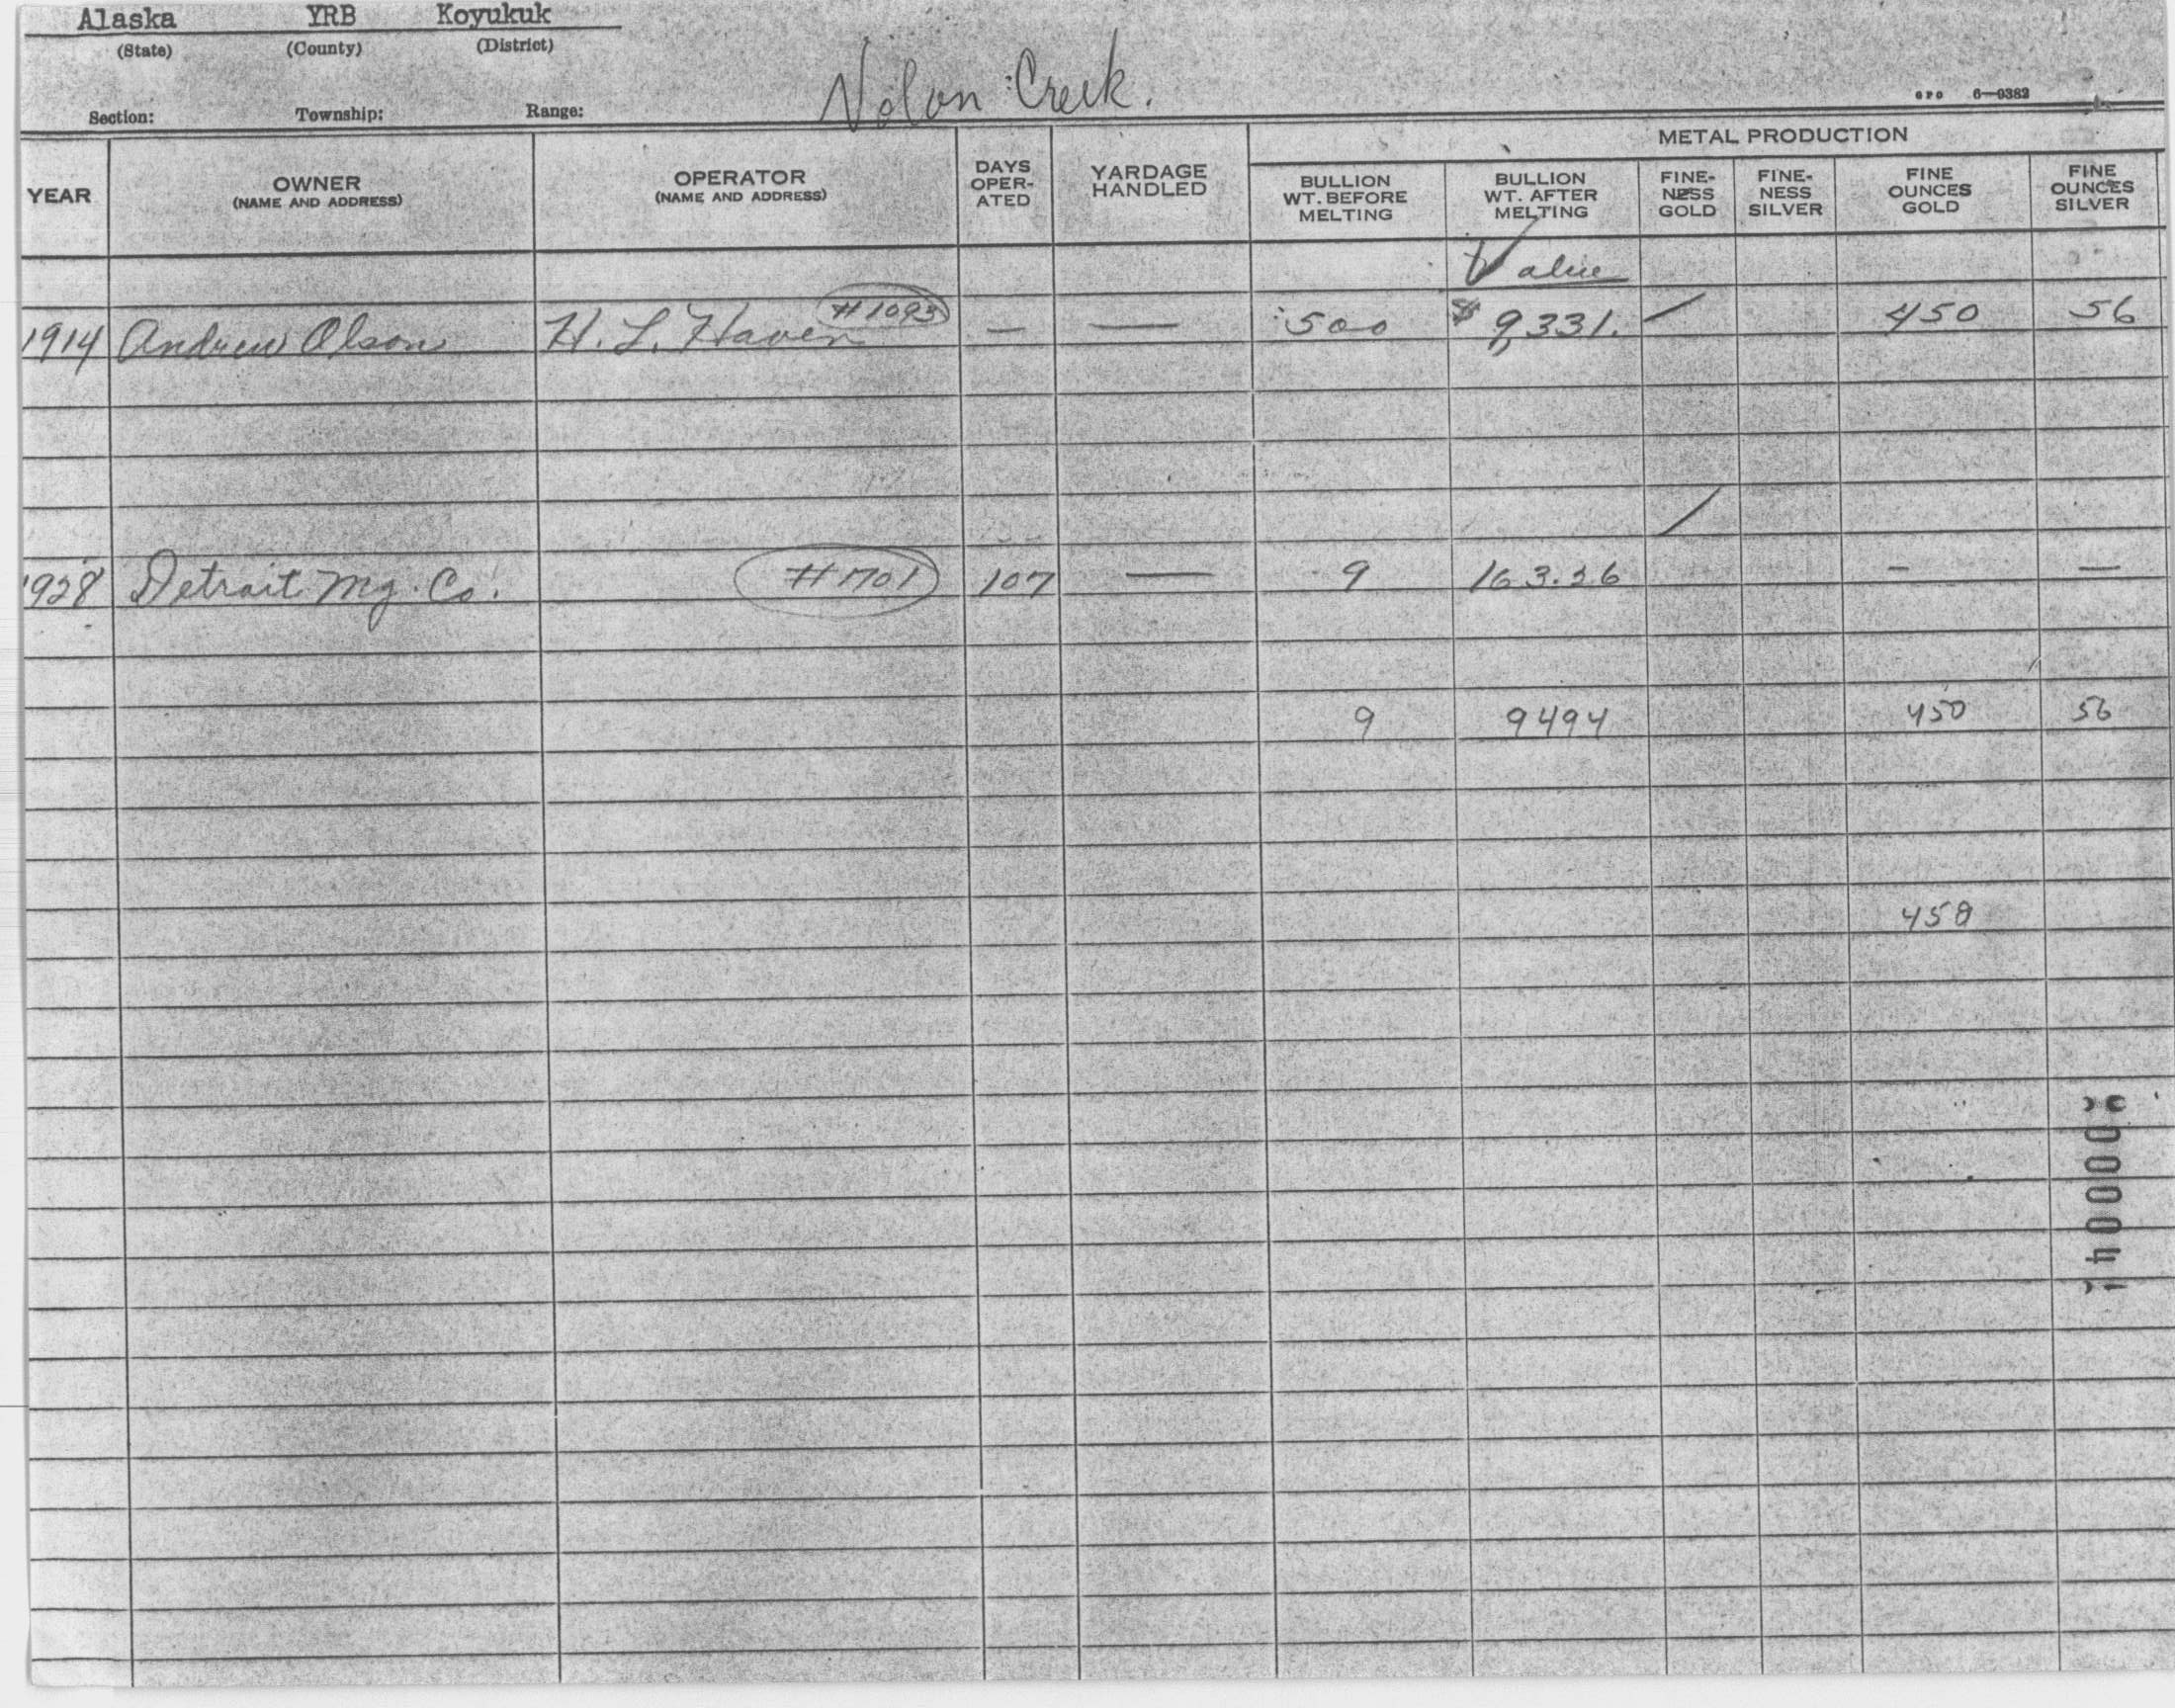 Alaska YRB Koyukuk
(State) (County) (District)
Nolan Creek.
GPO 6—0382
Section: Township: Range:
METAL PRODUCTION
YEAR OWNER (NAME AND ADDRESS) OPERATOR (NAME AND ADDRESS) DAYS OPER-ATED YARDAGE HANDLED BULLION WT. BEFORE MELTING BULLION WT. AFTER MELTING FINE-NESS GOLD FINE-NESS SILVER FINE OUNCES GOLD FINE OUNCES SILVER
Value
1914 Andrew Olson H. L. Haven #1093 — — 500 $9,331. 450 56
1928 Detroit Mg. Co. #1701 107 — 9 163.36 — —
9 9494 450 56
458